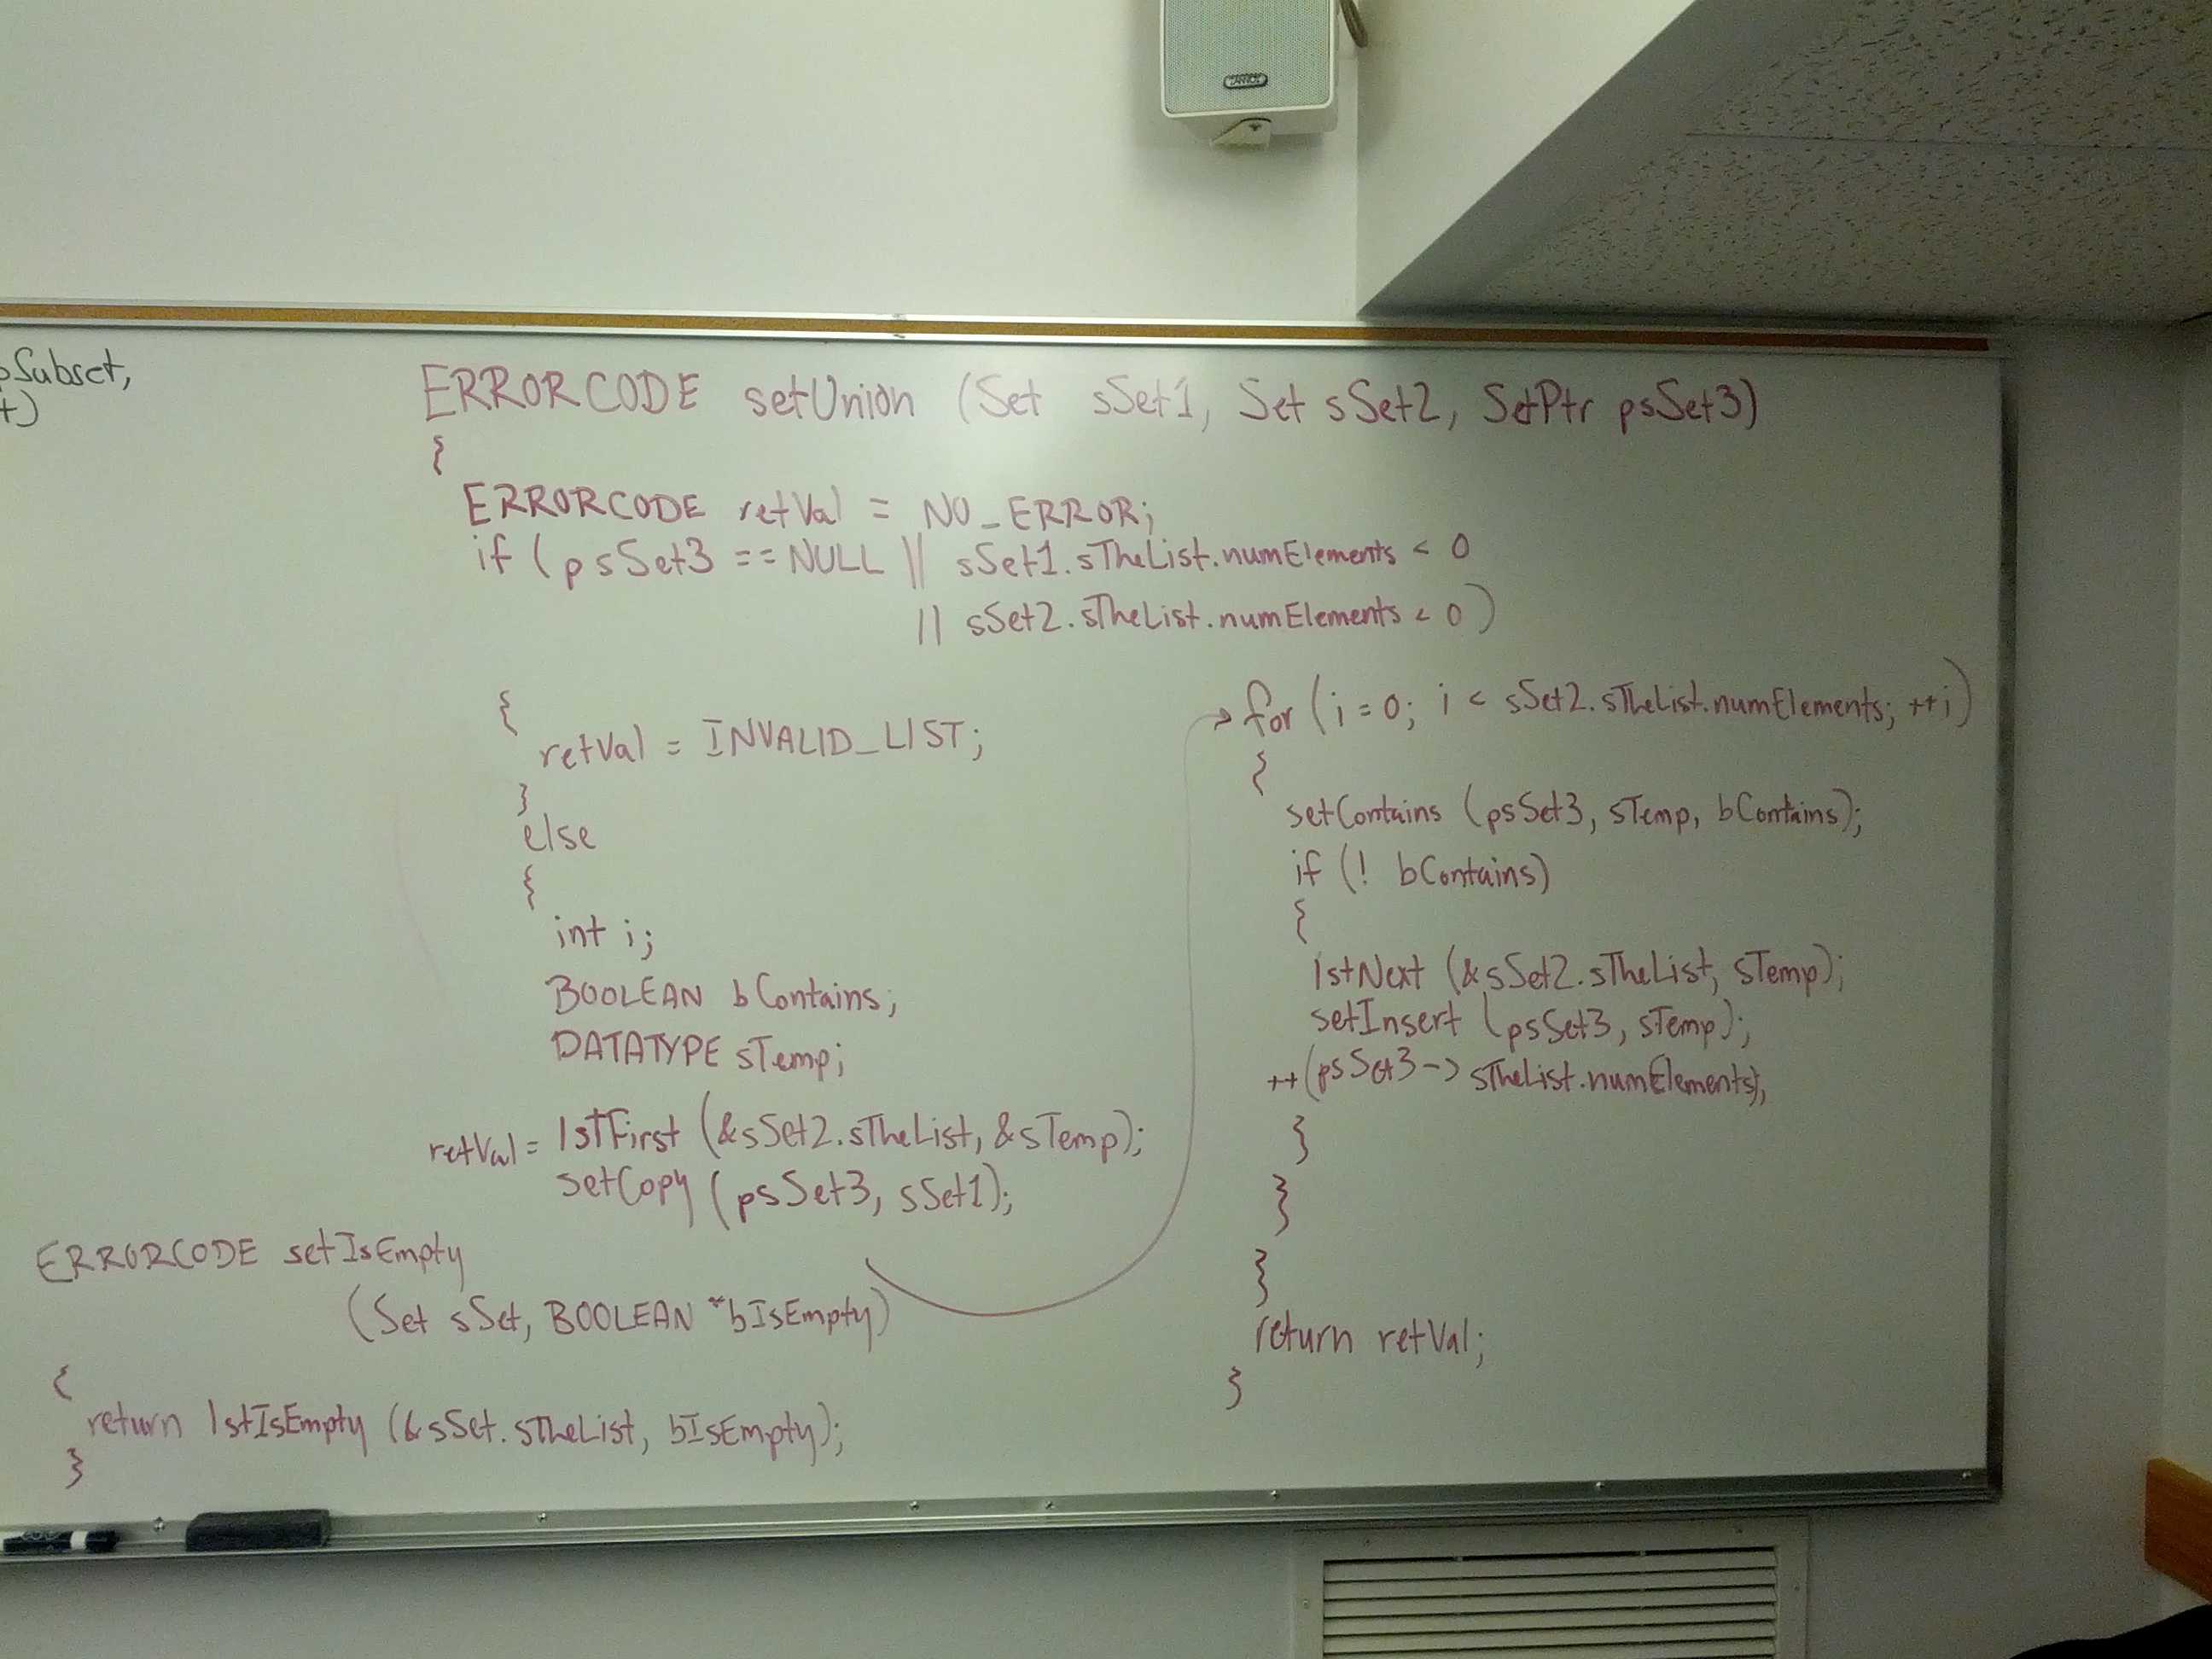 pSubset,
t)
ERRORCODE setUnion (Set sSet1, Set sSet2, SetPtr psSet3)
{
ERRORCODE retVal = NO_ERROR;
if (psSet3 == NULL || sSet1.sTheList.numElements < 0
|| sSet2.sTheList.numElements < 0)
{
retVal = INVALID_LIST;
}
else
{
int i;
BOOLEAN bContains;
DATATYPE sTemp;
retVal = lstFirst (&sSet2.sTheList, &sTemp);
setCopy (psSet3, sSet1);
for (i = 0; i < sSet2.sTheList.numElements; ++i)
{
setContains (psSet3, sTemp, bContains);
if (! bContains)
{
lstNext (&sSet2.sTheList, sTemp);
setInsert (psSet3, sTemp);
++(psSet3->sTheList.numElements);
}
}
}
return retVal;
}
ERRORCODE setIsEmpty
(Set sSet, BOOLEAN *bIsEmpty)
{
return lstIsEmpty (&sSet.sTheList, bIsEmpty);
}